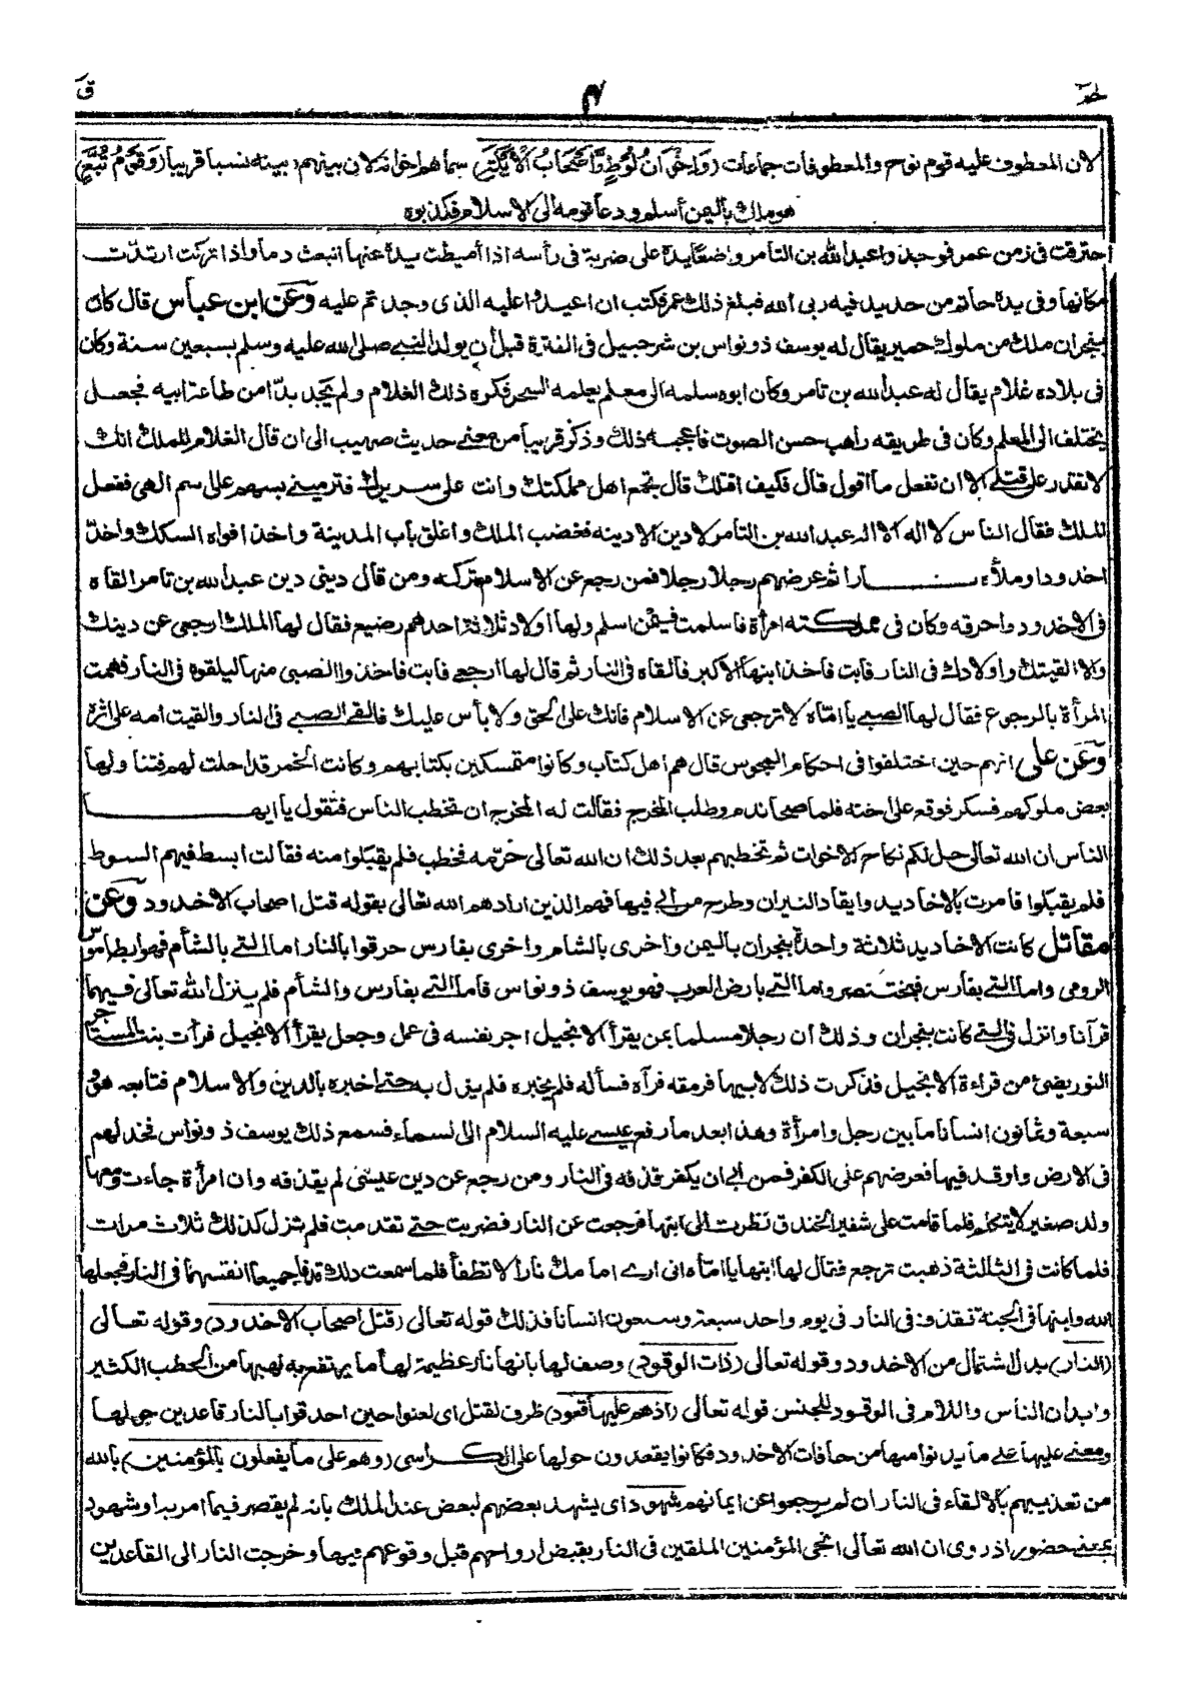 حمٓ ۴ قٓ
لان المعطوف عليه قوم نوح والمعطوفات جماعات (وَاِخْوَانُ لُوْطٍ وَّاَصْحَابُ الْاَيْكَةِ) سماهم اخوانه لان بينهم وبينه نسبا قريبا (وَقَوْمُ تُبَّعٍ)
هو ملك باليمن أسلم ودعا قومه الى الاسلام فكذبوه
احترقت فى زمن عمر فوجدوا عبد الله بن التامر واضعا يده على ضربة فى رأسه اذا أميطت يده عنها انبعث دما واذا تركت ارتدت
مكانها وفى يده خاتم من حديد فيه ربى الله فبلغ ذلك عمر فكتب ان اعيدوا عليه الذى وجدتم عليه وعن ابن عباس قال كان
بنجران ملك من ملوك حمير يقال له يوسف ذو نواس بن شرحبيل فى الفترة قبل أن يولد النبى صلى الله عليه وسلم بسبعين سنة وكان
فى بلاده غلام يقال له عبد الله بن تامر وكان ابوه سلمه الى معلم يعلمه السحر فكره ذلك الغلام ولم يجد بدّا من طاعة ابيه فجعل
يختلف الى المعلم وكان فى طريقه راهب حسن الصوت فاعجبه ذلك وذكر قريبا من معنى حديث صهيب الى ان قال الغلام للملك انك
لا تقدر على قتلى الا ان تفعل ما اقول قال فكيف اقتلك قال تجمع اهل مملكتك وانت على سريرك فترمينى بسهم على اسم الهى ففعل
الملك فقال الناس لا اله الا اله عبد الله بن التامر لا دين الا دينه فغضب الملك واغلق باب المدينة واخذ افواه السكك واخدّ
اخدودا وملأه نارا ثم عرضهم رجلا رجلا فمن رجع عن الاسلام تركه ومن قال دينى دين عبد الله بن تامر القاه
فى الاخدود واحرقه وكان فى مملكته امرأة فاسلمت فيمن اسلم ولها اولاد ثلاثة احدهم رضيع فقال لها الملك ارجعى عن دينك
والا القيتك واولادك فى النار فابت فاخذ ابنها الاكبر فالقاه فى النار ثم قال لها ارجعى فابت فاخذوا الصبى منها ليلقوه فى النار فهمت
المرأة بالرجوع فقال لها الصبى يا امّاه لا ترجعى عن الاسلام فانك على الحق ولا بأس عليك فالقى الصبى فى النار والقيت امه على اثره
وعن على انهم حين اختلفوا فى احكام المجوس قال هم اهل كتاب وكانوا متمسكين بكتابهم وكانت الخمر قد احلت لهم فتنا ولها
بعض ملوكهم فسكر فوقع على اخته فلما صحا ندم وطلب المخرج فقالت له المخرج ان تخطب الناس فتقول يا ايها
الناس ان الله تعالى حل لكم نكاح الاخوات ثم تخطبهم بعد ذلك ان الله تعالى حرّمه فخطب فلم يقبلوا منه فقالت ابسط فيهم السوط
فلم يقبلوا فامرت بالاخاديد وايقاد النيران وطرح من ابى فيها فهم الذين ارادهم الله تعالى بقوله قتل اصحاب الاخدود وعن
مقاتل كانت الاخاديد ثلاثة واحدة بنجران باليمن واخرى بالشام واخرى بفارس حرقوا بالنار اما التى بالشأم فهو ابطاموس
الرومى واما التى بفارس فبختنصر واما التى بارض العرب فهو يوسف ذو نواس فاما التى بفارس والشأم فلم ينزل الله تعالى فيهما
قرآنا وانزل فى التى كانت بنجران وذلك أن رجلا مسلما بمن يقرأ الانجيل اجر نفسه فى عمل وجعل يقرأ الانجيل فرأت بنت المستاجر
النور يضئ من قراءة الانجيل فذكرت ذلك لابيها فرمقه فرآه فسأله فلم يخبره فلم يزل به حتى اخبره بالدين والاسلام فتابعه هو و
سبعة وثمانون انسانا ما بين رجل وامرأة وهذا بعد ما رفع عيسى عليه السلام الى السماء فسمع ذلك يوسف ذو نواس فخد لهم
فى الارض واوقد فيها فعرضهم على الكفر فمن ابى ان يكفر قذفه فى النار ومن رجع عن دين عيسى لم يقذفه وان امرأة جاءت ومعها
ولد صغير لا يتكلم فلما قامت على شفير الخندق نظرت الى ابنها فرجعت عن النار فضربت حتى تقدمت فلم تزل كذلك ثلاث مرات
فلما كانت فى الثالثة ذهبت ترجع فقال لها ابنها يا امّاه انى ارى امامك نارا لا تطفأ فلما سمعت ذلك قذفا جميعا انفسهما فى النار فجعلها
الله وابنها فى الجنة فقذف فى النار فى يوم واحد سبعة وسبعون انسانا فذلك قوله تعالى (قتل اصحاب الاخدود) وقوله تعالى
(النار) بدل اشتمال من الاخدود وقوله تعالى (ذات الوقود) وصف لها بانها نار عظيمة لها ما يرتفع به لهبها من الحطب الكثير
وابدان الناس واللام فى الوقود للجنس قوله تعالى (اذ هم عليها قعود) ظرف لقتل اى لعنوا حين احدقوا بالنار قاعدين حولها
ومعنى عليها على ما يدنو منها من حافات الاخدود فكانوا يقعدون حولها على الكراسى (وهم على ما يفعلون بالمؤمنين) بالله
من تعذيبهم بالالقاء فى النار ان لم يرجعوا عن ايمانهم شهود اى يشهد بعضهم لبعض عند الملك بانه لم يقصر فيما امر به او شهود
بمعنى حضور اذ روى ان الله تعالى انجى المؤمنين الملقين فى النار بقبض ارواحهم قبل وقوعهم فيها وخرجت النار الى القاعدين